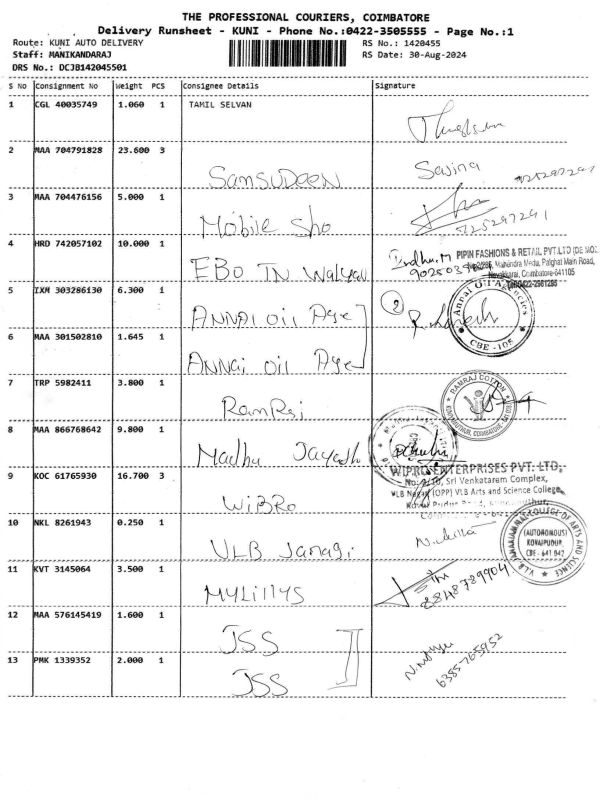 THE PROFESSIONAL COURIERS, COIMBATORE
Delivery Runsheet - KUNI - Phone No.:0422-3505555 - Page No.:1
Route: KUNI AUTO DELIVERY RS No.: 1420455
Staff: MANIKANDARAJ RS Date: 30-Aug-2024
DRS No.: DCJB142045501
S No Consignment No Weight PCS Consignee Details Signature
1 CGL 40035749 1.060 1 TAMIL SELVAN
2 MAA 704791828 23.600 3 SamsuDeen Savina
3 MAA 704476156 5.000 1 Mobile Sho 725297291
4 HRD 742057102 10.000 1 EBO TN Walyau Indhu.M
PIPIN FASHIONS & RETAIL PVT.LTD
Mahendra Medu, Palghat Main Road,
Coimbatore-641105
5 IXM 303286130 6.300 1 ANNAI oil Age
Annai Oil Agencies
CBE - 105
6 MAA 301502810 1.645 1 ANNai oil Age
7 TRP 5982411 3.800 1 RamRaj
RAMRAJ COTTON
8 MAA 866768642 9.800 1 Madhu Jayadh
9 KOC 61765930 16.700 3 WiBRo
WIPRO ENTERPRISES PVT. LTD,
Sri Venkataram Complex,
VLB Nagar (OPP) VLB Arts and Science College,
10 NKL 8261943 0.250 1 VLB Janagi
COLLEGE OF ARTS AND SCIENCE
(AUTONOMOUS)
KOVAIPUDUR,
CBE - 641 042
11 KVT 3145064 3.500 1 MYLillYS 8848789904
12 MAA 576145419 1.600 1 JSS
13 PMK 1339352 2.000 1 JSS 6385765952